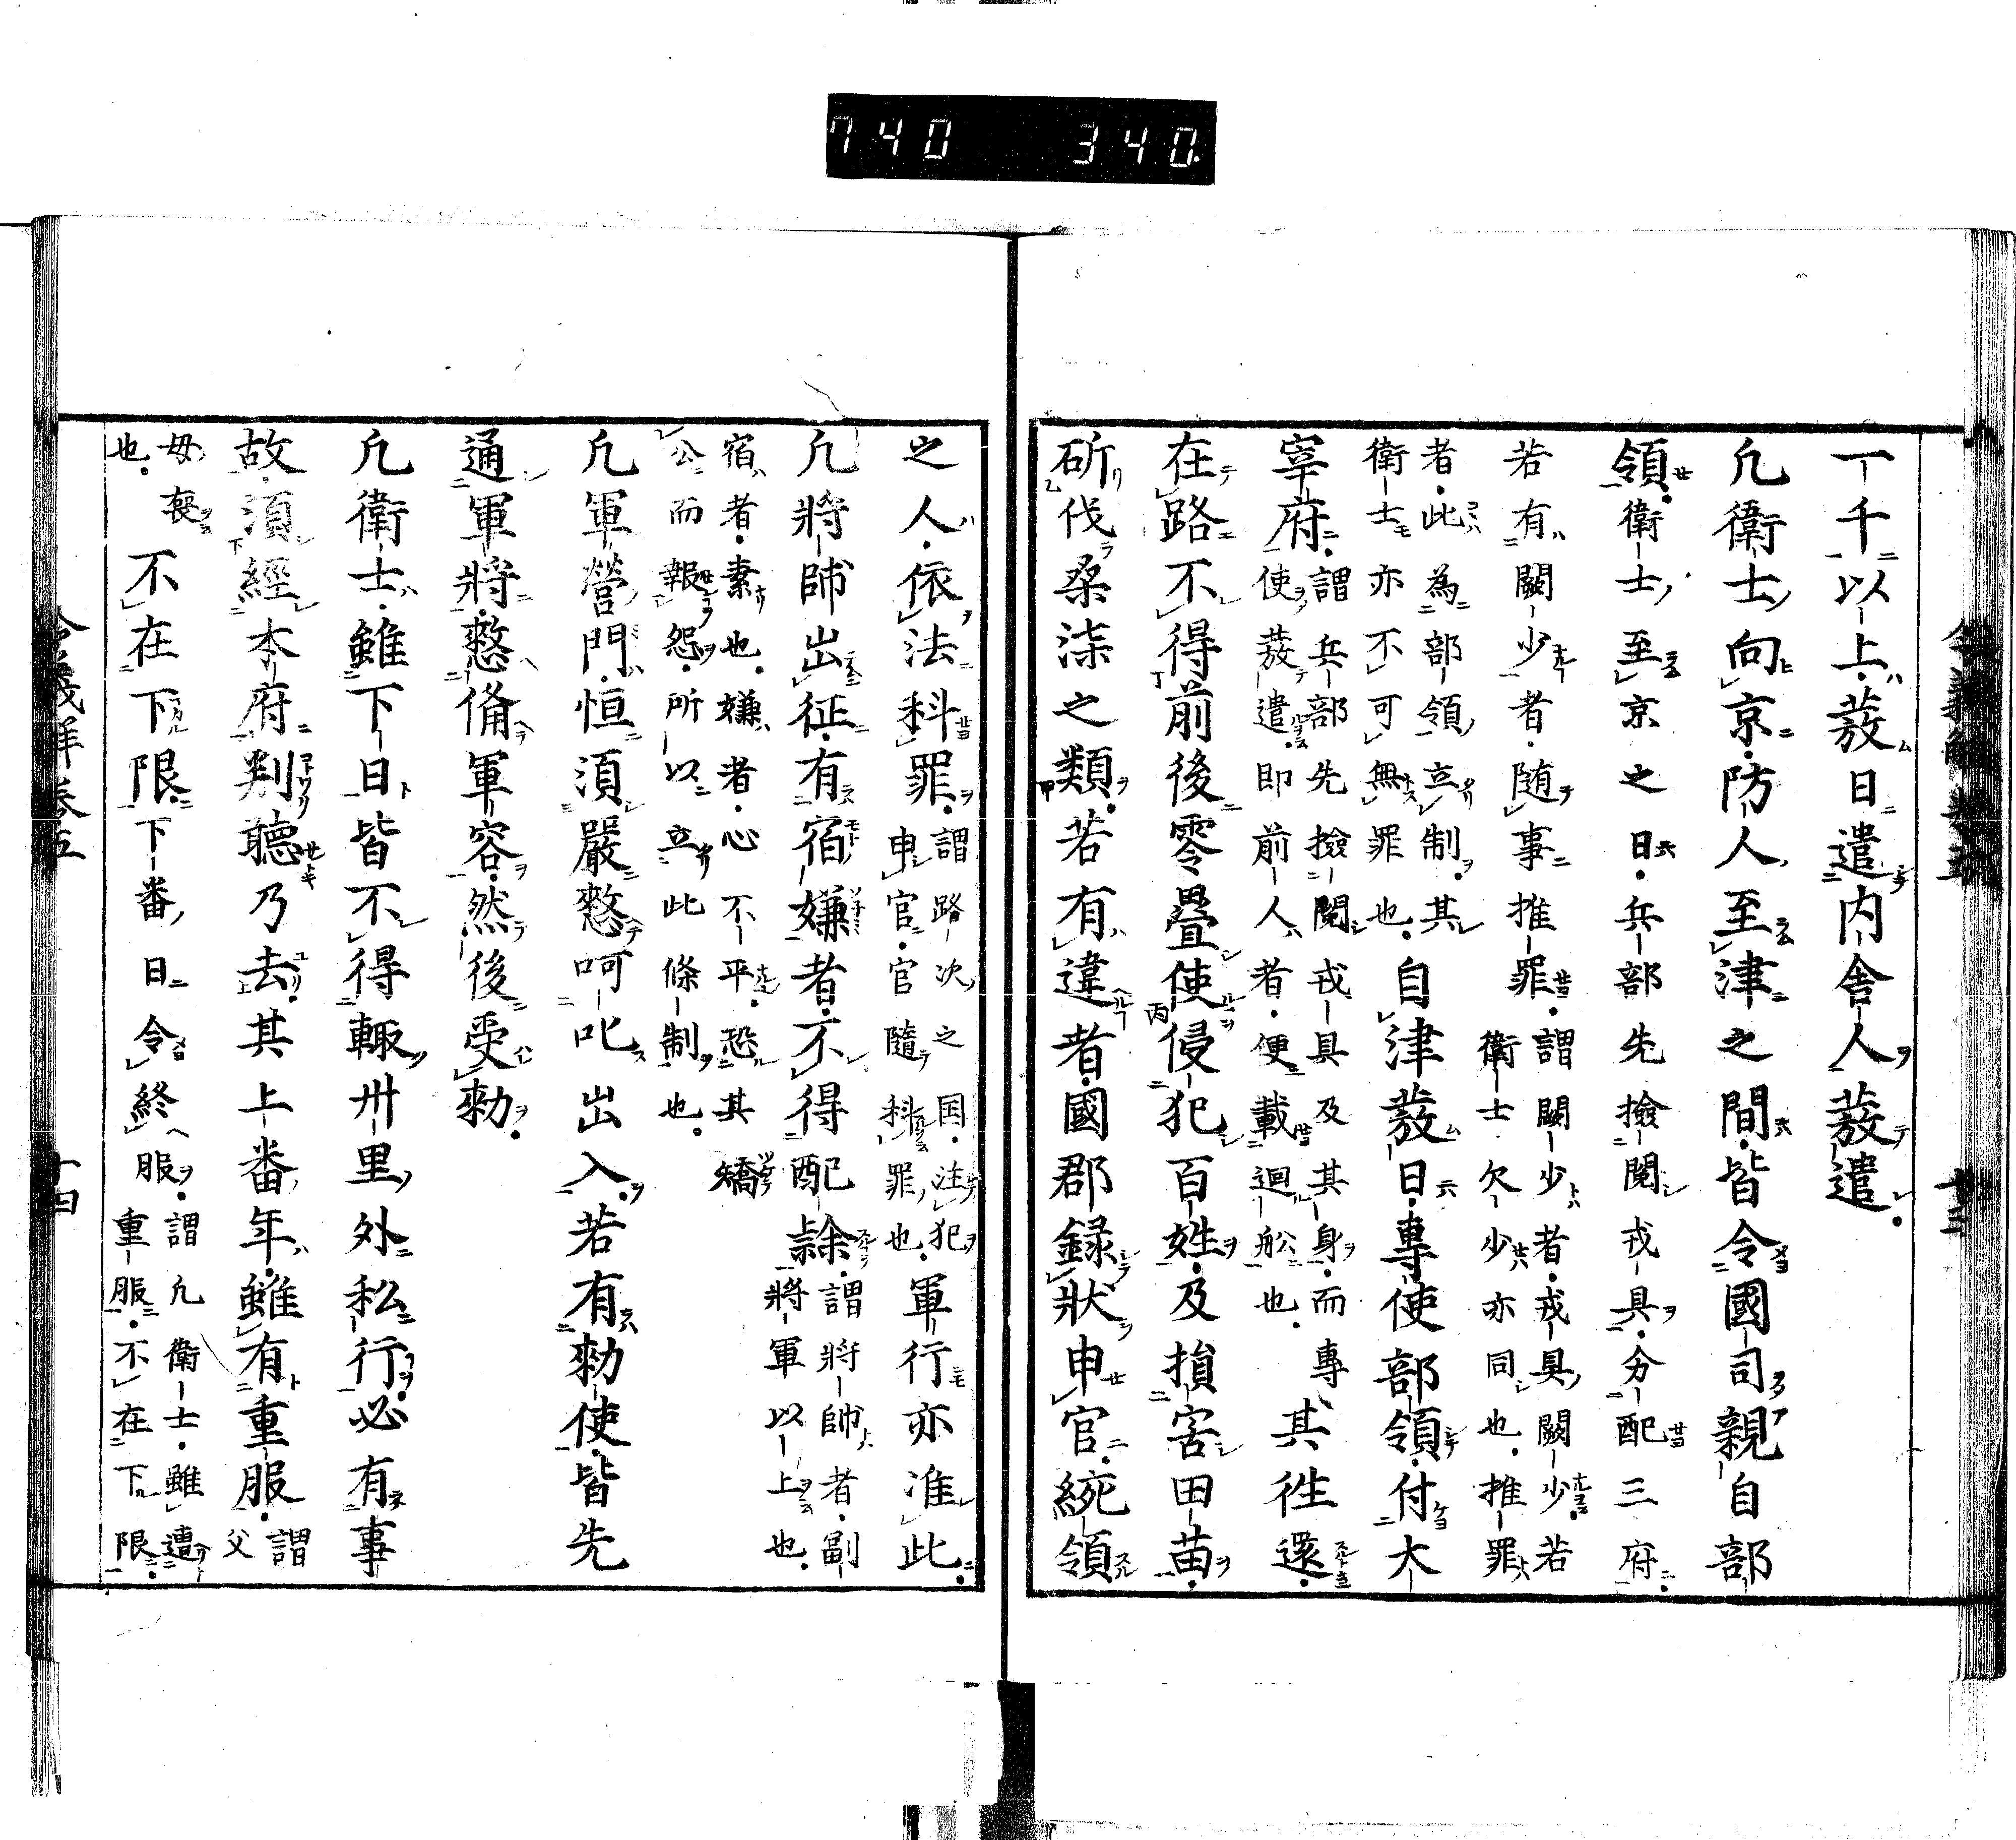 740 340.
一千以上。發日遣内舍人發遣。
凢衛士向京。防人至津之間。皆令國司親自部
領。衛士至京之日。兵部先撿閲戎具。分配三府。
若有闕少者。随事推罪。謂闕少者。戎具闕少。若
衛士欠少亦同也。推罪
者。此爲部領立制。其
衛士亦不可無罪也。自津發日。專使部領。付大
宰府。謂兵部先撿閲戎具及其身。而專
使發遣。即前人者。便載迴舩也。其徃還。
在路不得前後零疊使侵犯百姓。及損害田苗。
斫伐桑柒之類。若有違者。國郡録状申官。統領
之人。依法科罪。謂路次之国。注犯
申官。官隨科罪也。軍行亦准此。
凢將帥出征。有宿嫌者。不得配隷。謂將帥者。副
將軍以上也。
宿者。素也。嫌者。心不平。恐其矯
公而報怨。所以立此條制也。
凢軍營門。恒須嚴整呵叱出入。若有勑使。皆先
通軍將。整備軍容。然後受勑。
凢衛士。雖下日皆不得輙卅里外私行。必有事
故。須經本府判聽乃去。其上番年。雖有重服。謂
父
母喪
也。不在下限。下番日令終服。謂凢衛士。雖遭
重服。不在下限。
令義解巻五 十三
令義解巻五 十四